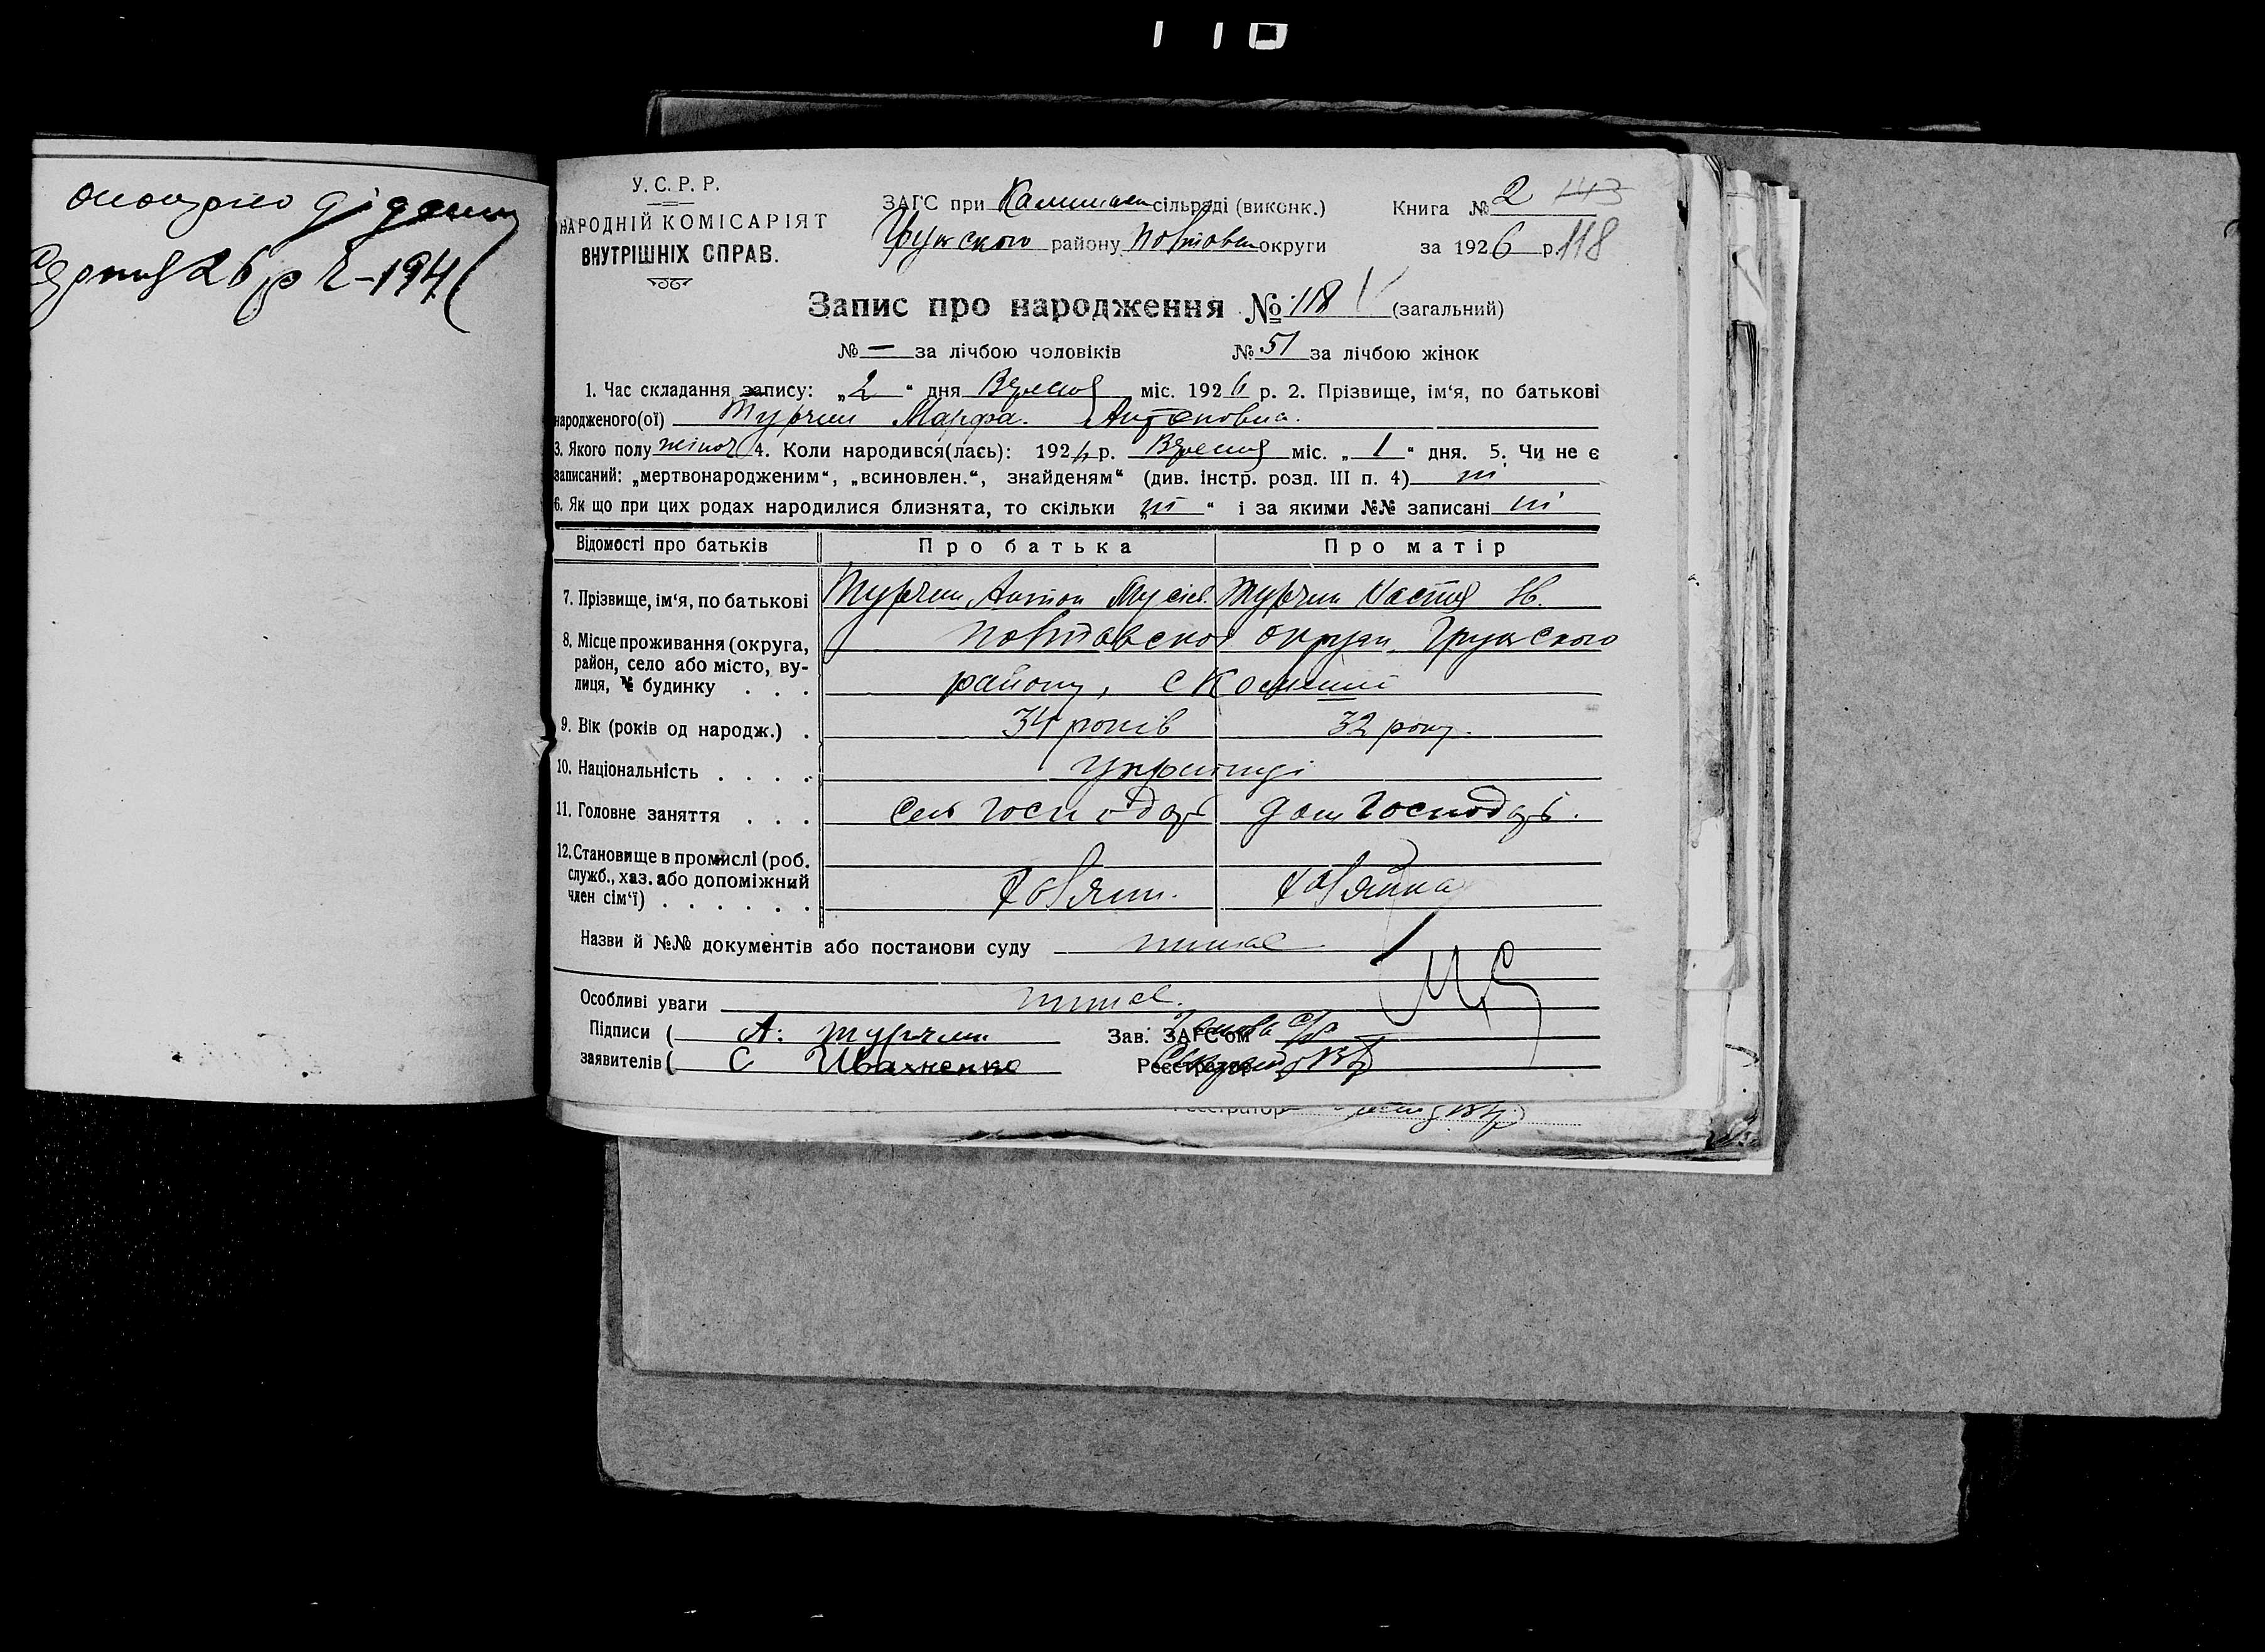 118
Серпня 26 р 2-1941
У. С. Р. Р.
НАРОДНІЙ КОМІСАРІЯТ
ВНУТРІШНІХ СПРАВ.
ЗАГС при сільраді (виконк.)
району Полтавс округи
Книга № 2 143
за 1926 р. 118
Запис про народження № 118 (загальний)
№ — за лічбою чоловіків № 51 за лічбою жінок
1. Час складання запису: „2“ дня Вересня міс. 1926 р. 2. Прізвище, ім‘я, по батькові
народженого(ої) Турчин Марфа Антоновна.
3. Якого полу жіноч 4. Коли народився(лась): 1926 р. Вересня міс. „1“ дня. 5. Чи не є
записаний: „мертвонародженим“, „всиновлен.“, знайденям“ (див. інстр. розд. III п. 4) ні
6. Як що при цих родах народилися близнята, то скільки „ні“ і за якими №№ записані ні
Відомості про батьків Про батька Про матір
7. Прізвище, ім‘я, по батькові Турчин Антон Мусієв. Турчин Настя
8. Місце проживання (округа, район, село або місто, вулиця, № будинку . . . Полтавської округи,
району, с
9. Вік (років од народж.) . 34 років 32 року.
10. Національність . . . . Українці
11. Головне заняття . . . Сель господар дом господарь.
12. Становище в промислі (роб. служб., хаз. або допоміжний член сім‘ї) . . . . . . хазяин. хазяйка
Назви й №№ документів або постанови суду немає
Особливі уваги немає.
Підписи ( А. Турчин Зав. ЗАГС‘ом
заявителів ( С Ивахненко Реєстратор
Реєстратор